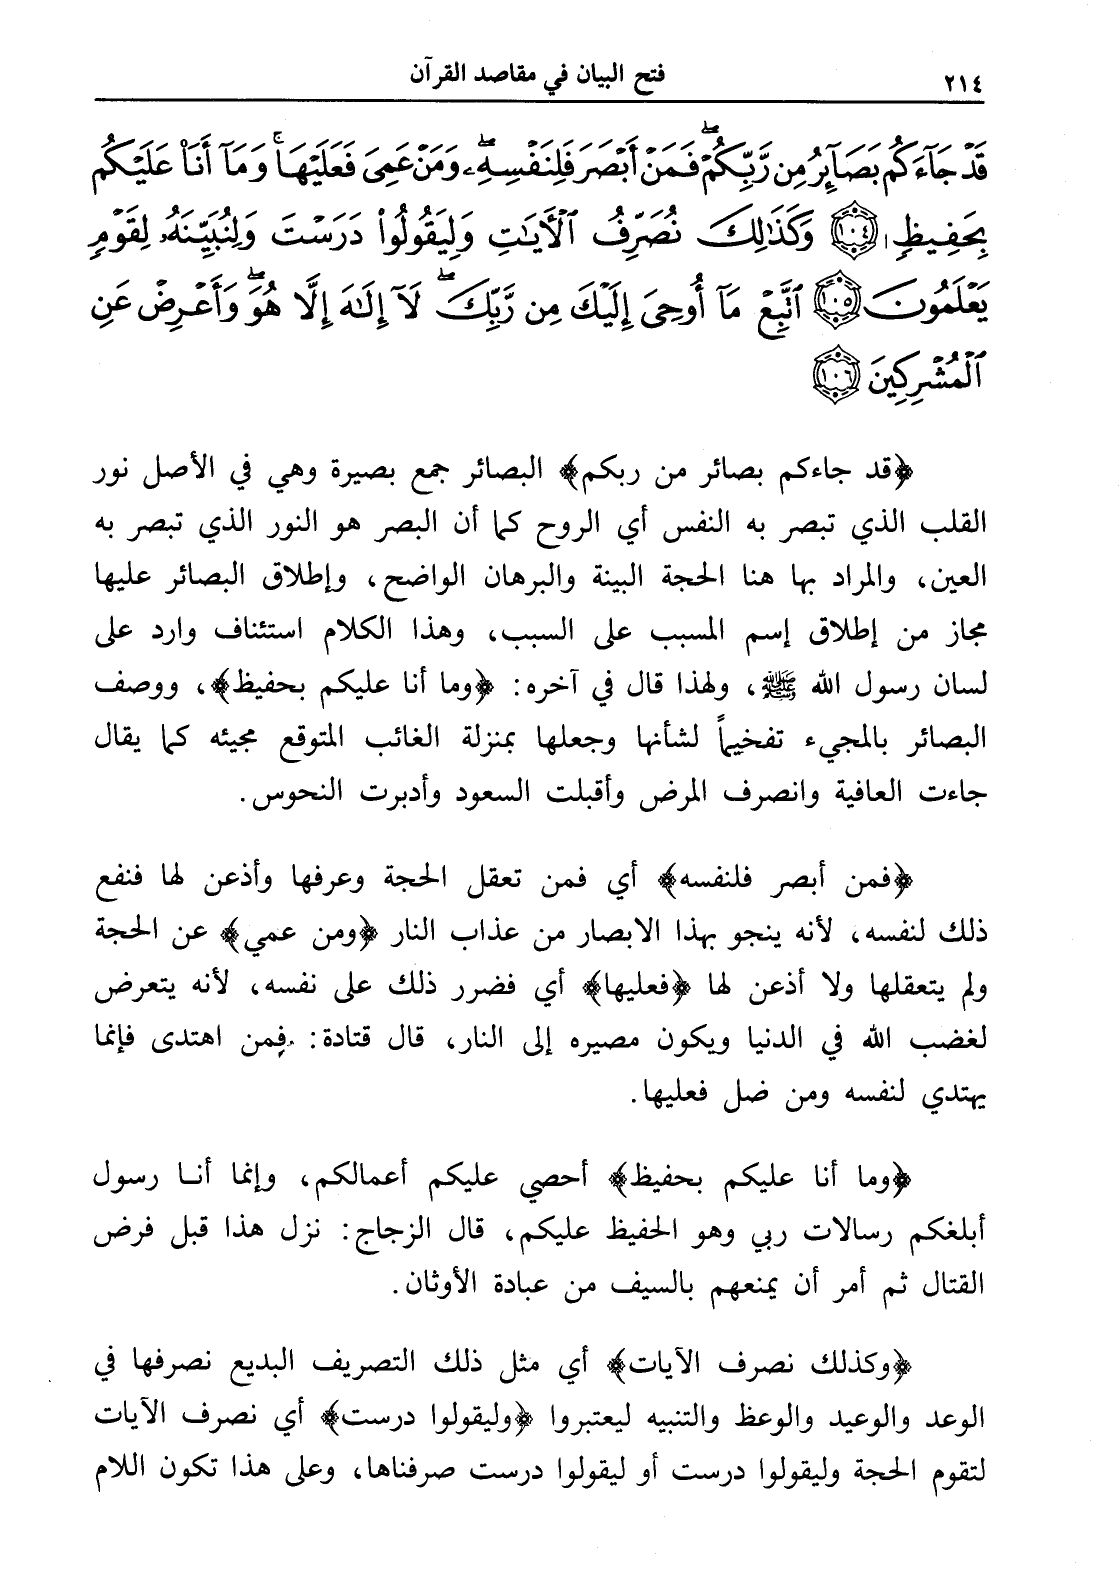 ٢١٤
فتح البيان في مقاصد القرآن
قَدْ جَآءَكُم بَصَآئِرُ مِن رَّبِّكُمْ ۖ فَمَنْ أَبْصَرَ فَلِنَفْسِهِۦ ۖ وَمَنْ عَمِىَ فَعَلَيْهَا ۚ وَمَآ أَنَا۠ عَلَيْكُم
بِحَفِيظٍ ﴿١٠٤﴾ وَكَذَٰلِكَ نُصَرِّفُ ٱلْأَيَٰتِ وَلِيَقُولُوا۟ دَرَسْتَ وَلِنُبَيِّنَهُۥ لِقَوْمٍ
يَعْلَمُونَ ﴿١٠٥﴾ ٱتَّبِعْ مَآ أُوحِىَ إِلَيْكَ مِن رَّبِّكَ ۖ لَآ إِلَٰهَ إِلَّا هُوَ ۖ وَأَعْرِضْ عَنِ
ٱلْمُشْرِكِينَ ﴿١٠٦﴾
﴿قد جاءكم بصائر من ربكم﴾ البصائر جمع بصيرة وهي في الأصل نور
القلب الذي تبصر به النفس أي الروح كما أن البصر هو النور الذي تبصر به
العين، والمراد بها هنا الحجة البينة والبرهان الواضح، وإطلاق البصائر عليها
مجاز من إطلاق إسم المسبب على السبب، وهذا الكلام استئناف وارد على
لسان رسول الله ﷺ، ولهذا قال في آخره: ﴿وما أنا عليكم بحفيظ﴾، ووصف
البصائر بالمجيء تفخيماً لشأنها وجعلها بمنزلة الغائب المتوقع مجيئه كما يقال
جاءت العافية وانصرف المرض وأقبلت السعود وأدبرت النحوس.
﴿فمن أبصر فلنفسه﴾ أي فمن تعقل الحجة وعرفها وأذعن لها فنفع
ذلك لنفسه، لأنه ينجو بهذا الابصار من عذاب النار ﴿ومن عمي﴾ عن الحجة
ولم يتعقلها ولا أذعن لها ﴿فعليها﴾ أي فضرر ذلك على نفسه، لأنه يتعرض
لغضب الله في الدنيا ويكون مصيره إلى النار، قال قتادة: فمن اهتدى فإنما
يهتدي لنفسه ومن ضل فعليها.
﴿وما أنا عليكم بحفيظ﴾ أحصي عليكم أعمالكم، وإنما أنا رسول
أبلغكم رسالات ربي وهو الحفيظ عليكم، قال الزجاج: نزل هذا قبل فرض
القتال ثم أمر أن يمنعهم بالسيف من عبادة الأوثان.
﴿وكذلك نصرف الآيات﴾ أي مثل ذلك التصريف البديع نصرفها في
الوعد والوعيد والوعظ والتنبيه ليعتبروا ﴿وليقولوا درست﴾ أي نصرف الآيات
لتقوم الحجة وليقولوا درست أو ليقولوا درست صرفناها، وعلى هذا تكون اللام